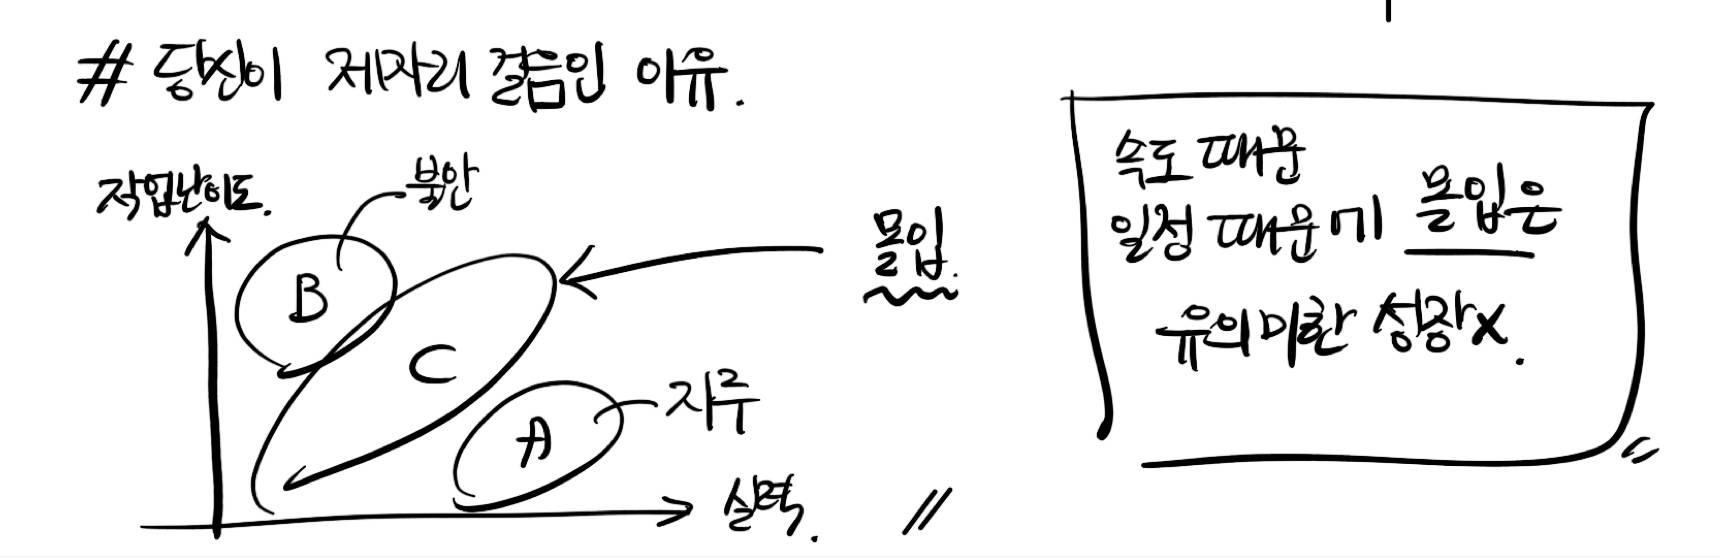 # 당신이 제자리 걸음인 이유.
작업난이도.
불안
B
C
A
몰입.
지루
실력.
속도 때문
일정 때문에 몰입은
유의미한 성장X.